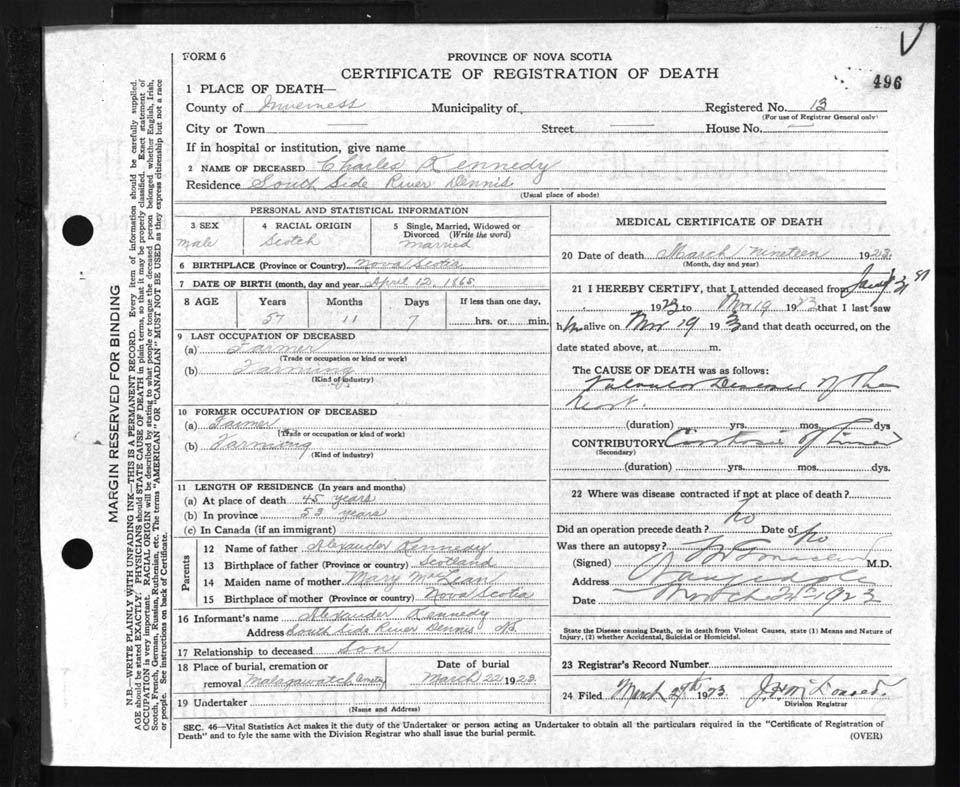 FORM 6
PROVINCE OF NOVA SCOTIA
CERTIFICATE OF REGISTRATION OF DEATH
496
1 PLACE OF DEATH—
County of Inverness Municipality of Registered No. 13
(For use of Registrar General only)
City or Town Street House No.
If in hospital or institution, give name
2 NAME OF DECEASED Charles Kennedy
Residence South Side River Dennis
(Usual place of abode)
PERSONAL AND STATISTICAL INFORMATION
3 SEX
male
4 RACIAL ORIGIN
Scotch
5 Single, Married, Widowed or
Divorced (Write the word)
married
6 BIRTHPLACE (Province or Country) Nova Scotia
7 DATE OF BIRTH (month, day and year April 12, 1865
8 AGE Years Months Days If less than one day,
57 11 7 hrs. or min.
9 LAST OCCUPATION OF DECEASED
(a) Farmer
(Trade or occupation or kind or work)
(b) Farming
(Kind of industry)
10 FORMER OCCUPATION OF DECEASED
(a) Farmer
(Trade or occupation or kind of work)
(b) Farmiong
(Kind of industry)
11 LENGTH OF RESIDENCE (In years and months)
(a) At place of death 45 years
(b) In province years
(c) In Canada (if an immigrant)
Parents
12 Name of father Alexander Kennedy
13 Birthplace of father (Province or country) Scotland
14 Maiden name of mother Mary McLean
15 Birthplace of mother (Province or country) Nova Scotia
16 Informant's name Alexander Kennedy
Address South Side River Dennis NS.
17 Relationship to deceased Son
18 Place of burial, cremation or Date of burial
removal Malagawatch Cemetry March 22 1923.
19 Undertaker
(Name and Address)
MEDICAL CERTIFICATE OF DEATH
20 Date of death March Nineteen 1923.
(Month, day and year)
21 I HEREBY CERTIFY, that I attended deceased from
1923 to Mar 19 1923 that I last saw
him alive on Mar 19 1923 and that death occurred, on the
date stated above, at m.
The CAUSE OF DEATH was as follows:
Valvular Disease of the
Heart.
(duration) yrs. mos. dys
CONTRIBUTORY Cirrhosis of Liver
(Secondary)
(duration) yrs. mos. dys.
22 Where was disease contracted if not at place of death?
Did an operation precede death? no Date of no
Was there an autopsy?
(Signed) M.D.
Address
Date March 1923
State the Disease causing Death, or in death from Violent Causes, state (1) Means and Nature of
Injury, (2) whether Accidental, Suicidal or Homicidal.
23 Registrar's Record Number
24 Filed March 29th 1923.
Division Registrar
SEC. 46—Vital Statistics Act makes it the duty of the Undertaker or person acting as Undertaker to obtain all the particulars required in the "Certificate of Registration of
Death" and to fyle the same with the Division Registrar who shall issue the burial permit.
(OVER)
MARGIN RESERVED FOR BINDING
N.B.—WRITE PLAINLY WITH UNFADING INK—THIS IS A PERMANENT RECORD. Every item of information should be carefully supplied.
AGE should be stated EXACTLY. PHYSICIANS should STATE CAUSE OF DEATH in plain terms, so that it may be properly classified. Exact statement of
OCCUPATION is very important. RACIAL ORIGIN will be described by stating to what people or tongue the deceased person belonged whether English, Irish,
Scotch, French, German, Russian, Ruthenian, etc. The terms "AMERICAN" OR "CANADIAN" MUST NOT BE USED as they express citizenship but not a race
or people. See instructions on back of Certificate.